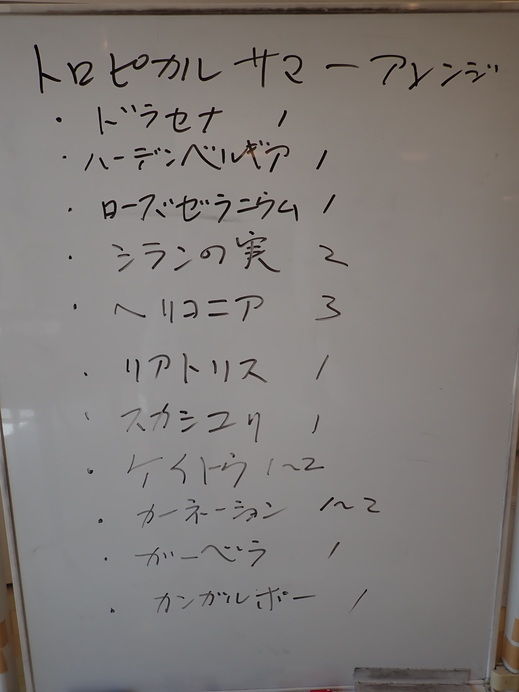 トロピカルサマーアレンジ
・ドラセナ 1
・ハーデンベルギア 1
・ローズゼラニウム 1
・シランの実 2
・ヘリコニア 3
・リアトリス 1
・スカシユリ 1
・ケイトウ 1~2
・カーネーション 1~2
・ガーベラ 1
・カンガルポー 1